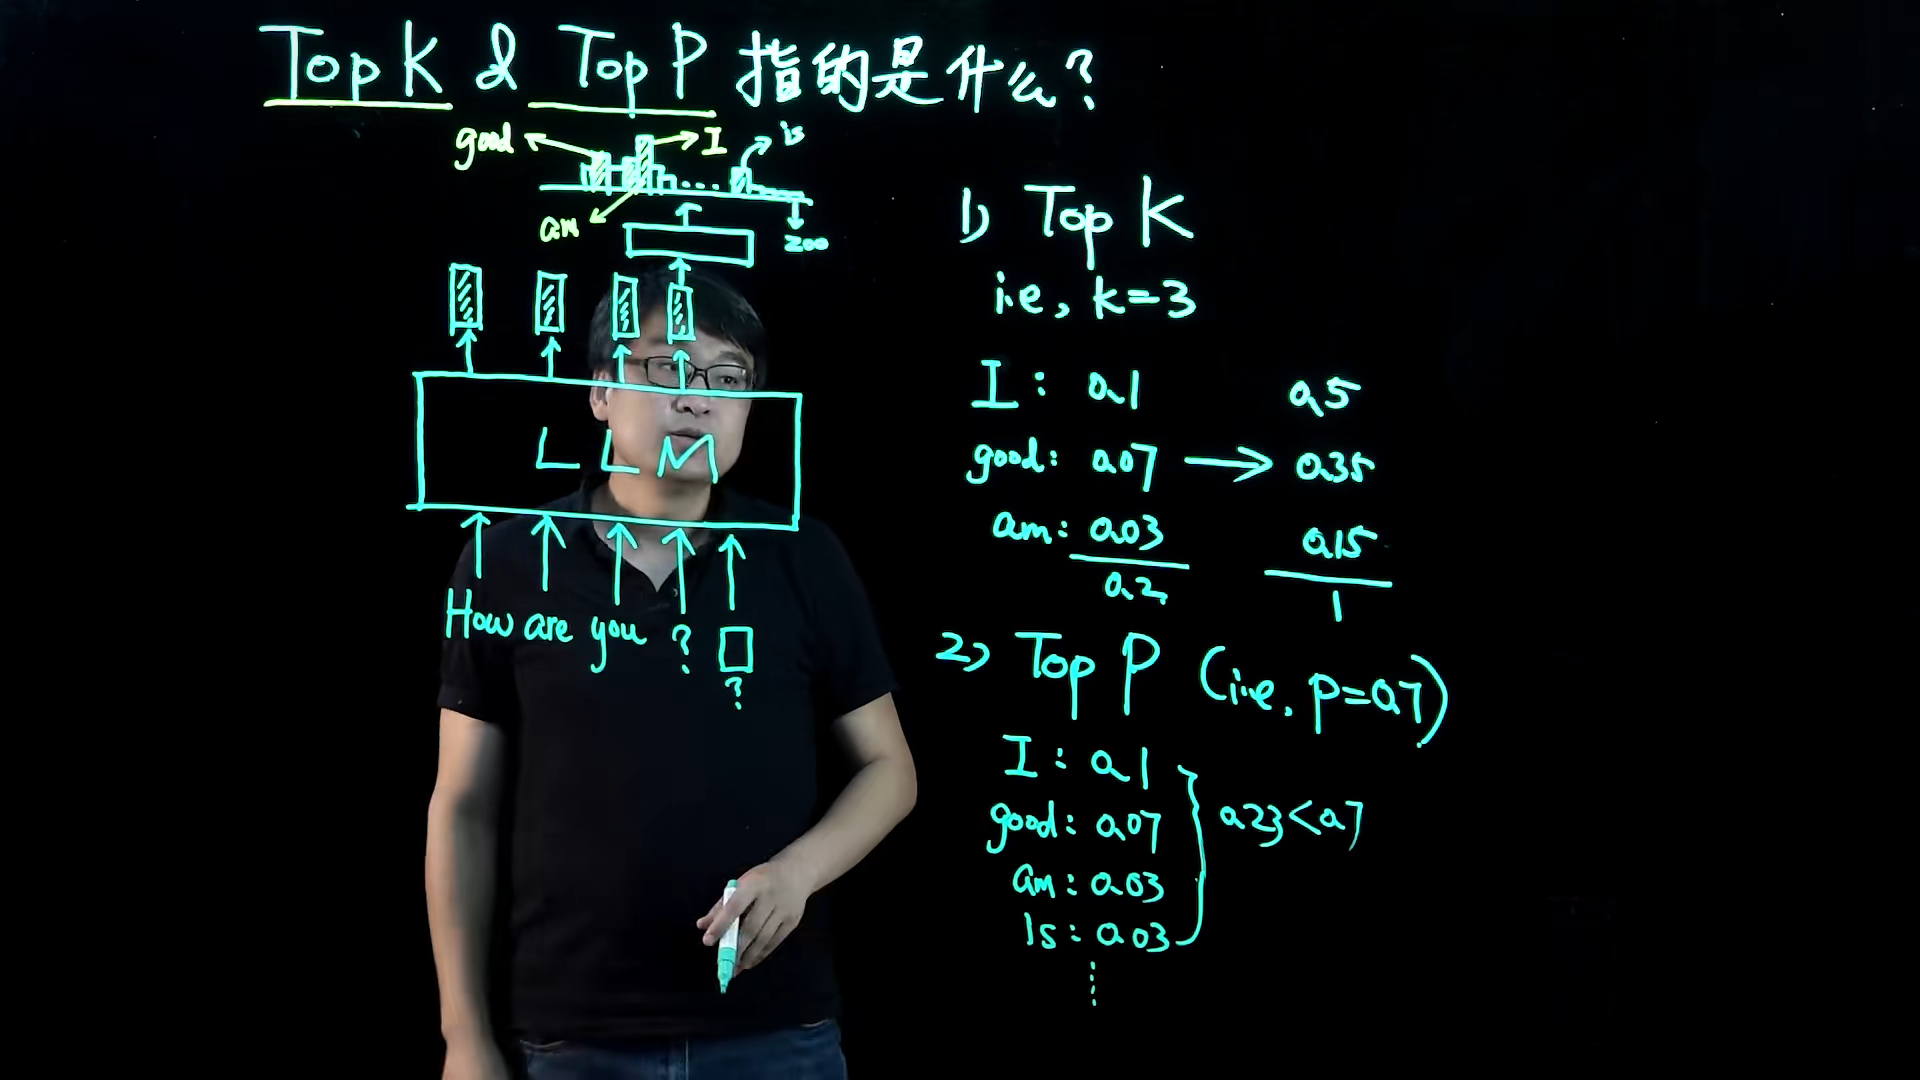 Top K & Top P 指的是什么?
good
I
is
am
zoo
LLM
How are you ?
?
1) Top K
i.e, k=3
I: 0.1 0.5
good: 0.07 → 0.35
am: 0.03 0.15
0.2 1
2) Top P (i.e. p=0.7)
I: 0.1
good: 0.07 0.23<0.7
am: 0.03
Is: 0.03